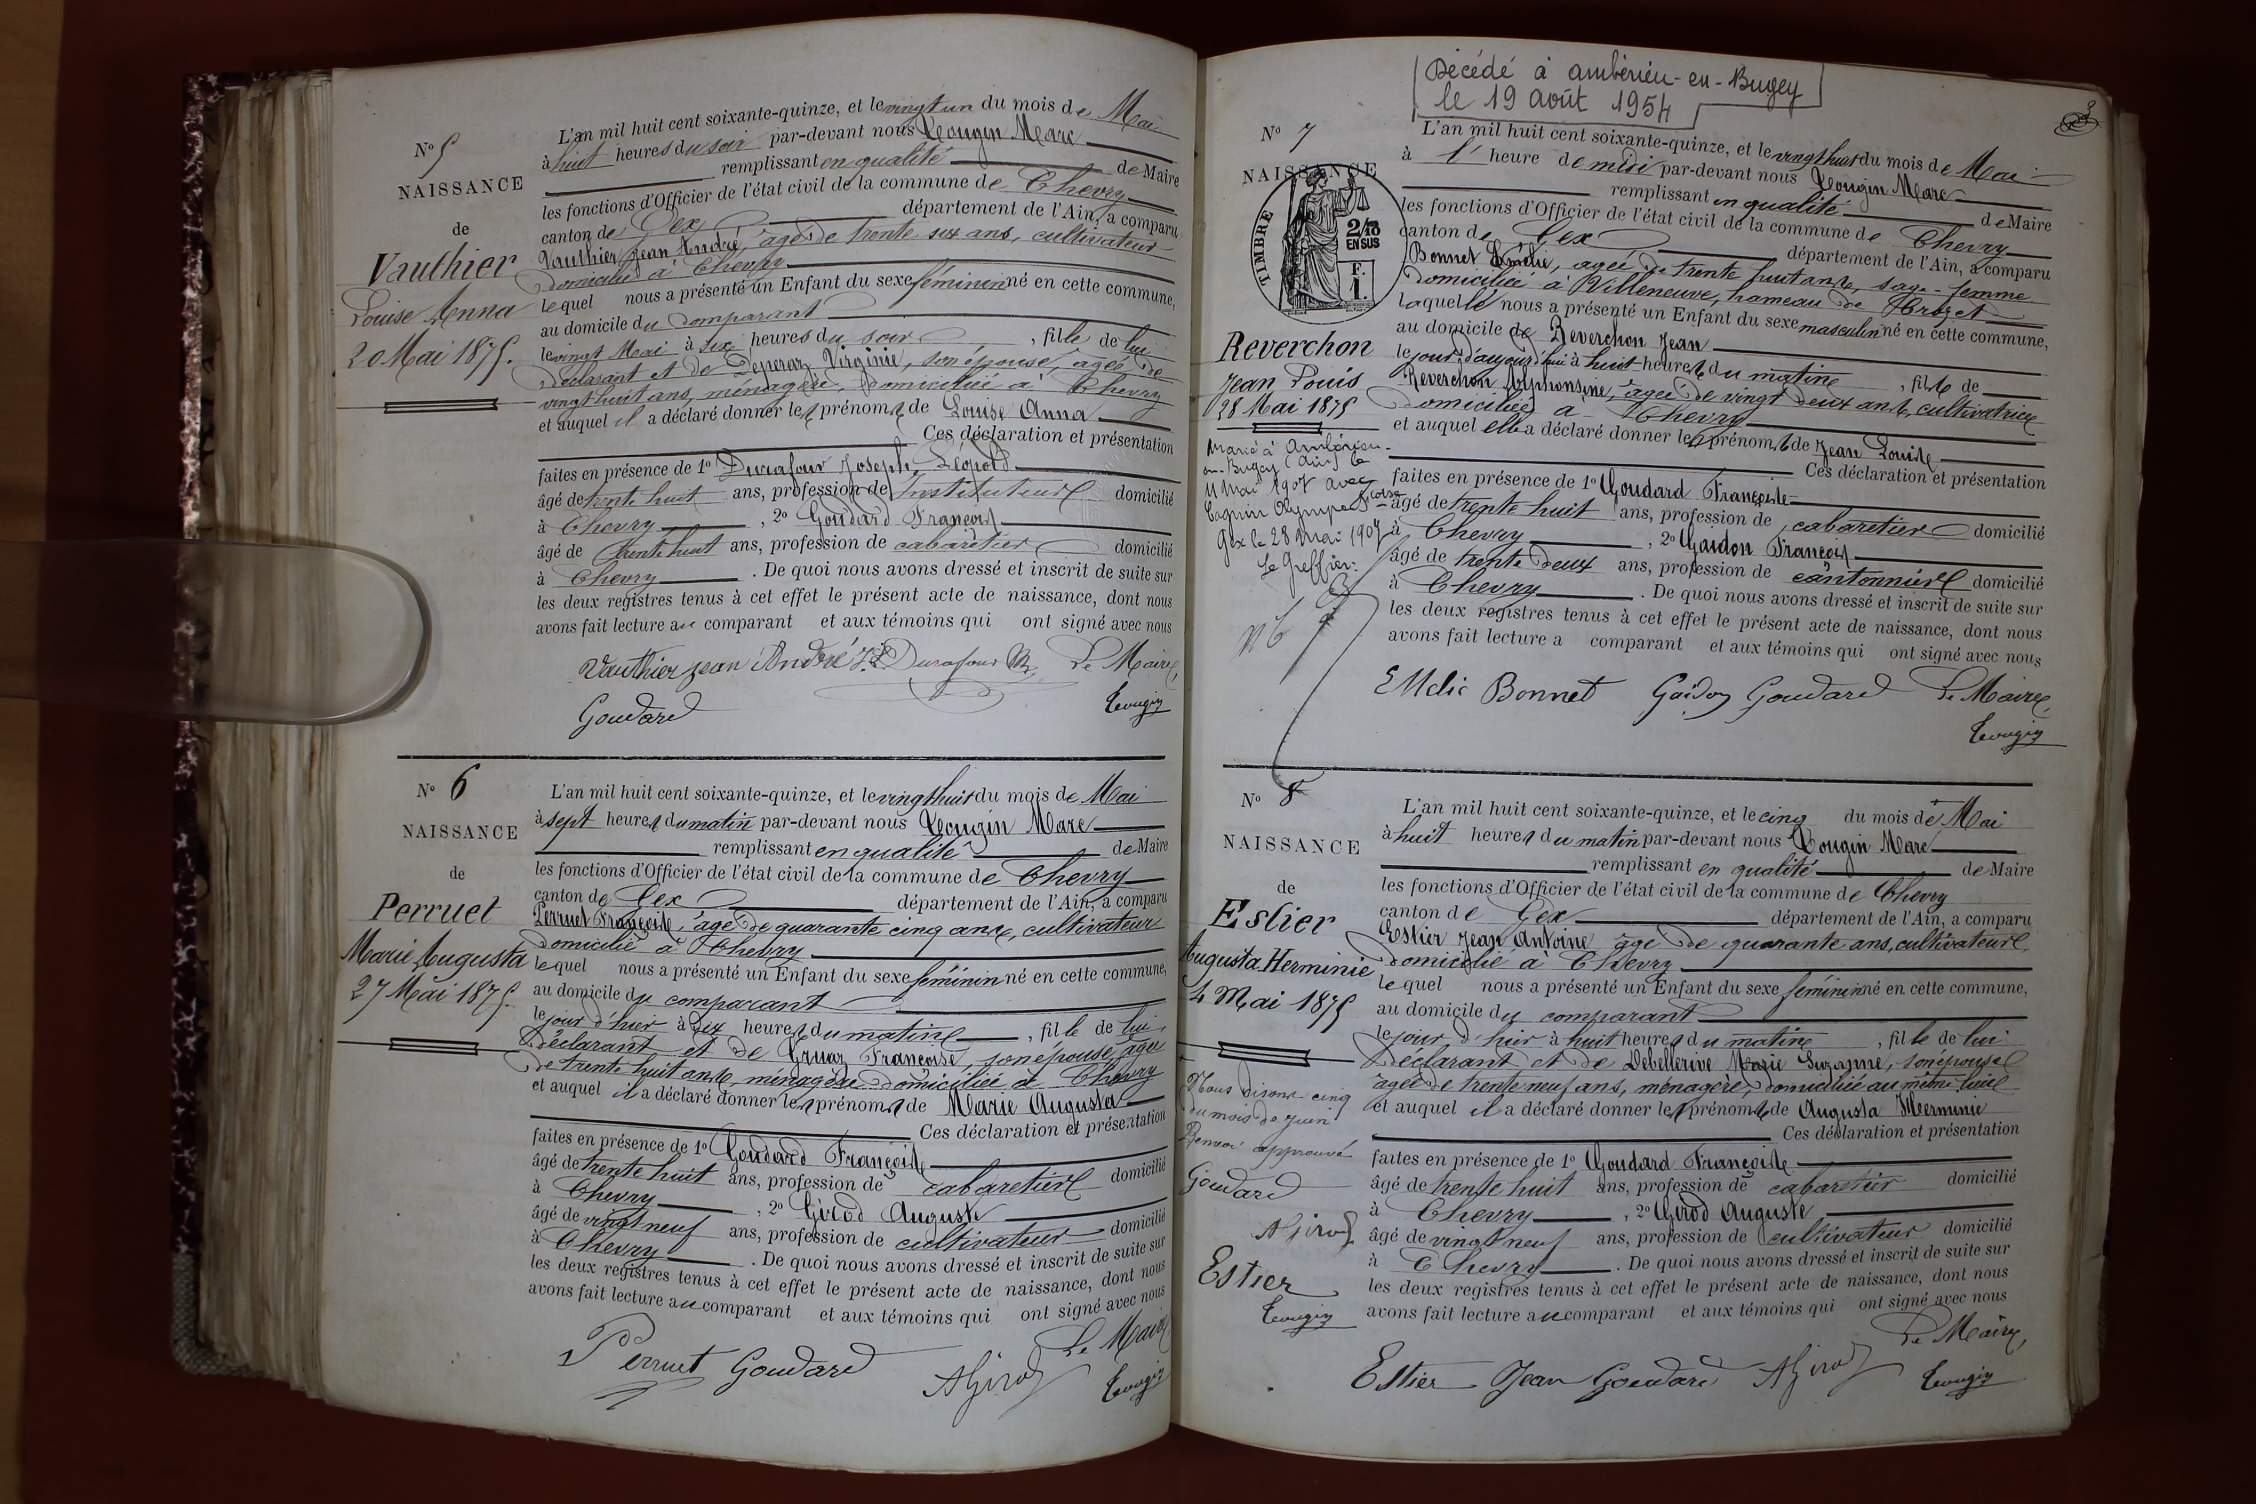 N° 5
NAISSANCE
de
Vauthier
Louise Anna
20 Mai 1875.
L'an mil huit cent soixante-quinze, et le vingt un du mois de Mai
à huit heures du soir par-devant nous Tougin Marc
remplissant en qualité de Maire
les fonctions d'Officier de l'état civil de la commune de Chevry
canton de Gex département de l'Ain, a comparu
Vauthier Jean André, âgé de trente six ans, cultivateur
domicilié à Chevry
lequel nous a présenté un Enfant du sexe féminin né en cette commune,
au domicile du comparant
le vingt Mai à six heures du soir, fille de lui
déclarant et de Deperaz Virginie, son épouse, âgée de
vingt huit ans, ménagère, domiciliée à Chevry
et auquel il a déclaré donner les prénoms de Louise Anna
Ces déclaration et présentation
faites en présence de 1° Durafour Joseph, Léopold
âgé de trente huit ans, profession de Instituteur domicilié
à Chevry, 2° Goudard François
âgé de trente huit ans, profession de cabaretier domicilié
à Chevry. De quoi nous avons dressé et inscrit de suite sur
les deux registres tenus à cet effet le présent acte de naissance, dont nous
avons fait lecture au comparant et aux témoins qui ont signé avec nous
Vauthier jean André J. L Durafour Le Maire,
Goudard Tougin
N° 6
NAISSANCE
de
Perruet
Marie Augusta
27 Mai 1875.
L'an mil huit cent soixante-quinze, et le vingt huit du mois de Mai
à sept heures du matin par-devant nous Tougin Marc
remplissant en qualité de Maire
les fonctions d'Officier de l'état civil de la commune de Chevry
canton de Gex département de l'Ain, a comparu
Perruet François, âgé de quarante cinq ans, cultivateur
domicilié à Chevry
lequel nous a présenté un Enfant du sexe féminin né en cette commune,
au domicile du comparant
le jour d'hier à dix heures du matin, fille de lui,
déclarant et de Gruaz Françoise, son épouse, âgée
de trente huit ans, ménagère domiciliée à Chevry
et auquel il a déclaré donner les prénoms de Marie Augusta
Ces déclaration et présentation
faites en présence de 1° Goudard François
âgé de trente huit ans, profession de cabaretier domicilié
à Chevry, 2° Girod Auguste
âgé de vingt neuf ans, profession de cultivateur domicilié
à Chevry. De quoi nous avons dressé et inscrit de suite sur
les deux registres tenus à cet effet le présent acte de naissance, dont nous
avons fait lecture au comparant et aux témoins qui ont signé avec nous
Le Maire
Perruet Goudard AGirod Tougin
Décédé à Ambérieu-en-Bugey
le 19 août 1954
3
N° 7
NAISSANCE
TIMBRE
2/10
EN SUS
F.
1.
Reverchon
Jean Louis
28 Mai 1875
Marié à Ambérieu-
en-Bugey (Ain) le
11 Mai 1907 avec
Cagnin Olympe
Gex le 28 mai 1907
Le Greffier:
L'an mil huit cent soixante-quinze, et le vingt huit du mois de Mai
à l' heure de midi par-devant nous Tougin Marc
remplissant en qualité de Maire
les fonctions d'Officier de l'état civil de la commune de Chevry
canton de Gex département de l'Ain, a comparu
Bonnet Emélie, agée de trente huit ans, sage-femme
domiciliée à Villeneuve, hameau de Crozet
laquelle nous a présenté un Enfant du sexe masculin né en cette commune,
au domicile de Reverchon Jean
le jour d'aujourd'hui à huit heures du matin, fils de
Reverchon Alphonsine, âgée de vingt deux ans, cultivatrice
domiciliée à Chevry
et auquel elle a déclaré donner les prénoms de Jean Louis
Ces déclaration et présentation
faites en présence de 1° Goudard François
âgé de trente huit ans, profession de cabaretier domicilié
à Chevry, 2° Gaidon François
âgé de trente deux ans, profession de cantonnier domicilié
à Chevry. De quoi nous avons dressé et inscrit de suite sur
les deux registres tenus à cet effet le présent acte de naissance, dont nous
avons fait lecture a comparant et aux témoins qui ont signé avec nous
EMelie Bonnet Gaidon Goudard Le Maire,
Tougin
N° 8
NAISSANCE
de
Estier
Augusta Herminie
4 Mai 1875
Nous disons cinq
du mois de juin
Renvoi approuvé
Goudard
AGirod
Estier
Tougin
L'an mil huit cent soixante-quinze, et le cinq du mois de Mai
à huit heures du matin par-devant nous Tougin Marc
remplissant en qualité de Maire
les fonctions d'Officier de l'état civil de la commune de Chevry
canton de Gex département de l'Ain, a comparu
Estier Jean Antoine âgé de quarante ans, cultivateur
domicilié à Chevry
lequel nous a présenté un Enfant du sexe féminin né en cette commune,
au domicile du comparant
le jour d'hier à huit heures du matin, fille de lui
déclarant et de Debellerive Marie Suzanne, son épouse
âgée de trente neuf ans, ménagère, domiciliée au même lieu
et auquel il a déclaré donner les prénoms de Augusta Herminie
Ces déclaration et présentation
faites en présence de 1° Goudard François
âgé de trente huit ans, profession de cabaretier domicilié
à Chevry, 2° Girod Auguste
âgé de vingt neuf ans, profession de cultivateur domicilié
à Chevry. De quoi nous avons dressé et inscrit de suite sur
les deux registres tenus à cet effet le présent acte de naissance, dont nous
avons fait lecture au comparant et aux témoins qui ont signé avec nous
Le Maire,
Estier Jean Goudard AGirod Tougin